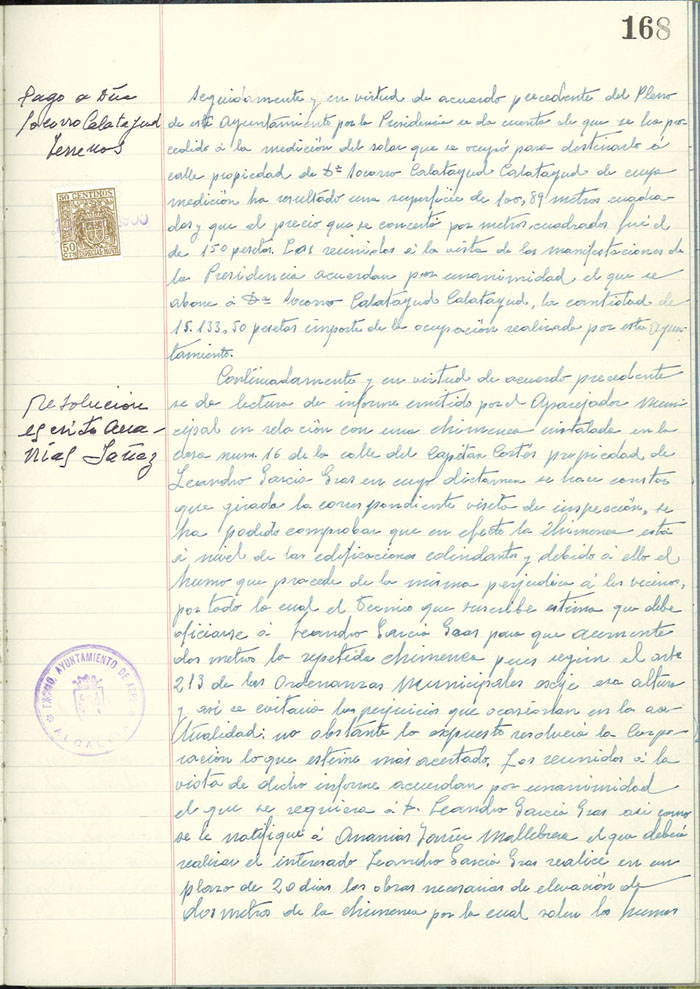 168
Pago a Dña
Socorro Calatayud
Terrenos
50 CENTIMOS
50
CTS
ESPECIAL MOVIL
Seguidamente y en virtud de acuerdo precedente del Pleno
de este Ayuntamiento por la Presidencia se da cuenta de que se ha pro-
cedido á la medición del solar que se ocupó para destinarlo á
calle propiedad de Dª Socorro Calatayud Calatayud de cuya
medición ha resultado una superficie de 100,89 metros cuadra-
dos y que el precio que se concertó por metros cuadrados fué el
de 150 pesetas. Los reunidos á la vista de las manifestaciones de
la Presidencia acuerdan por unanimidad el que se
abone á Dª Socorro Calatayud Calatayud, la cantidad de
15.133,50 pesetas importe de la ocupación realizada por este Ayun-
tamiento.
Resolución
escrito Ana-
nías Yañez
Continuadamente y en virtud de acuerdo precedente
se da lectura de informe emitido por el Aparejador Muni-
cipal en relación con una chimenea instalada en la
casa num. 16 de la calle del Capitán Cortés propiedad de
Leandro García Gras en cuyo dictamen se hace constar
que girada la correspondiente visita de inspección, se
ha podido comprobar que en efecto la chimenea está
á nivel de las edificaciones colindantes y debido á ello el
humo que procede de la misma perjudica á los vecinos,
por todo lo cual el Tecnico que suscribe estima que debe
oficiarse á Leandro García Gras para que aumente
dos metros la repetida chimenea pues según el arte
213 de las Ordenanzas Municipales exije esa altura
y así se evitaria los perjuicios que ocasionan en la ac-
tualidad: no obstante lo expuesto resolverá la Corpo-
ración lo que estime más acertado. Los reunidos á la
vista de dicho informe acuerdan por unanimidad
el que se requiera á D. Leandro García Gras así como
se le notifique á Ananias Yañez Mallebrera el que deberá
realizar el interesado Leandro García Gras realice en un
plazo de 20 dias las obras necesarias de elevación de
dos metros de la chimenea por la cual salen los humos
AYUNTAMIENTO DE
ALCALDIA